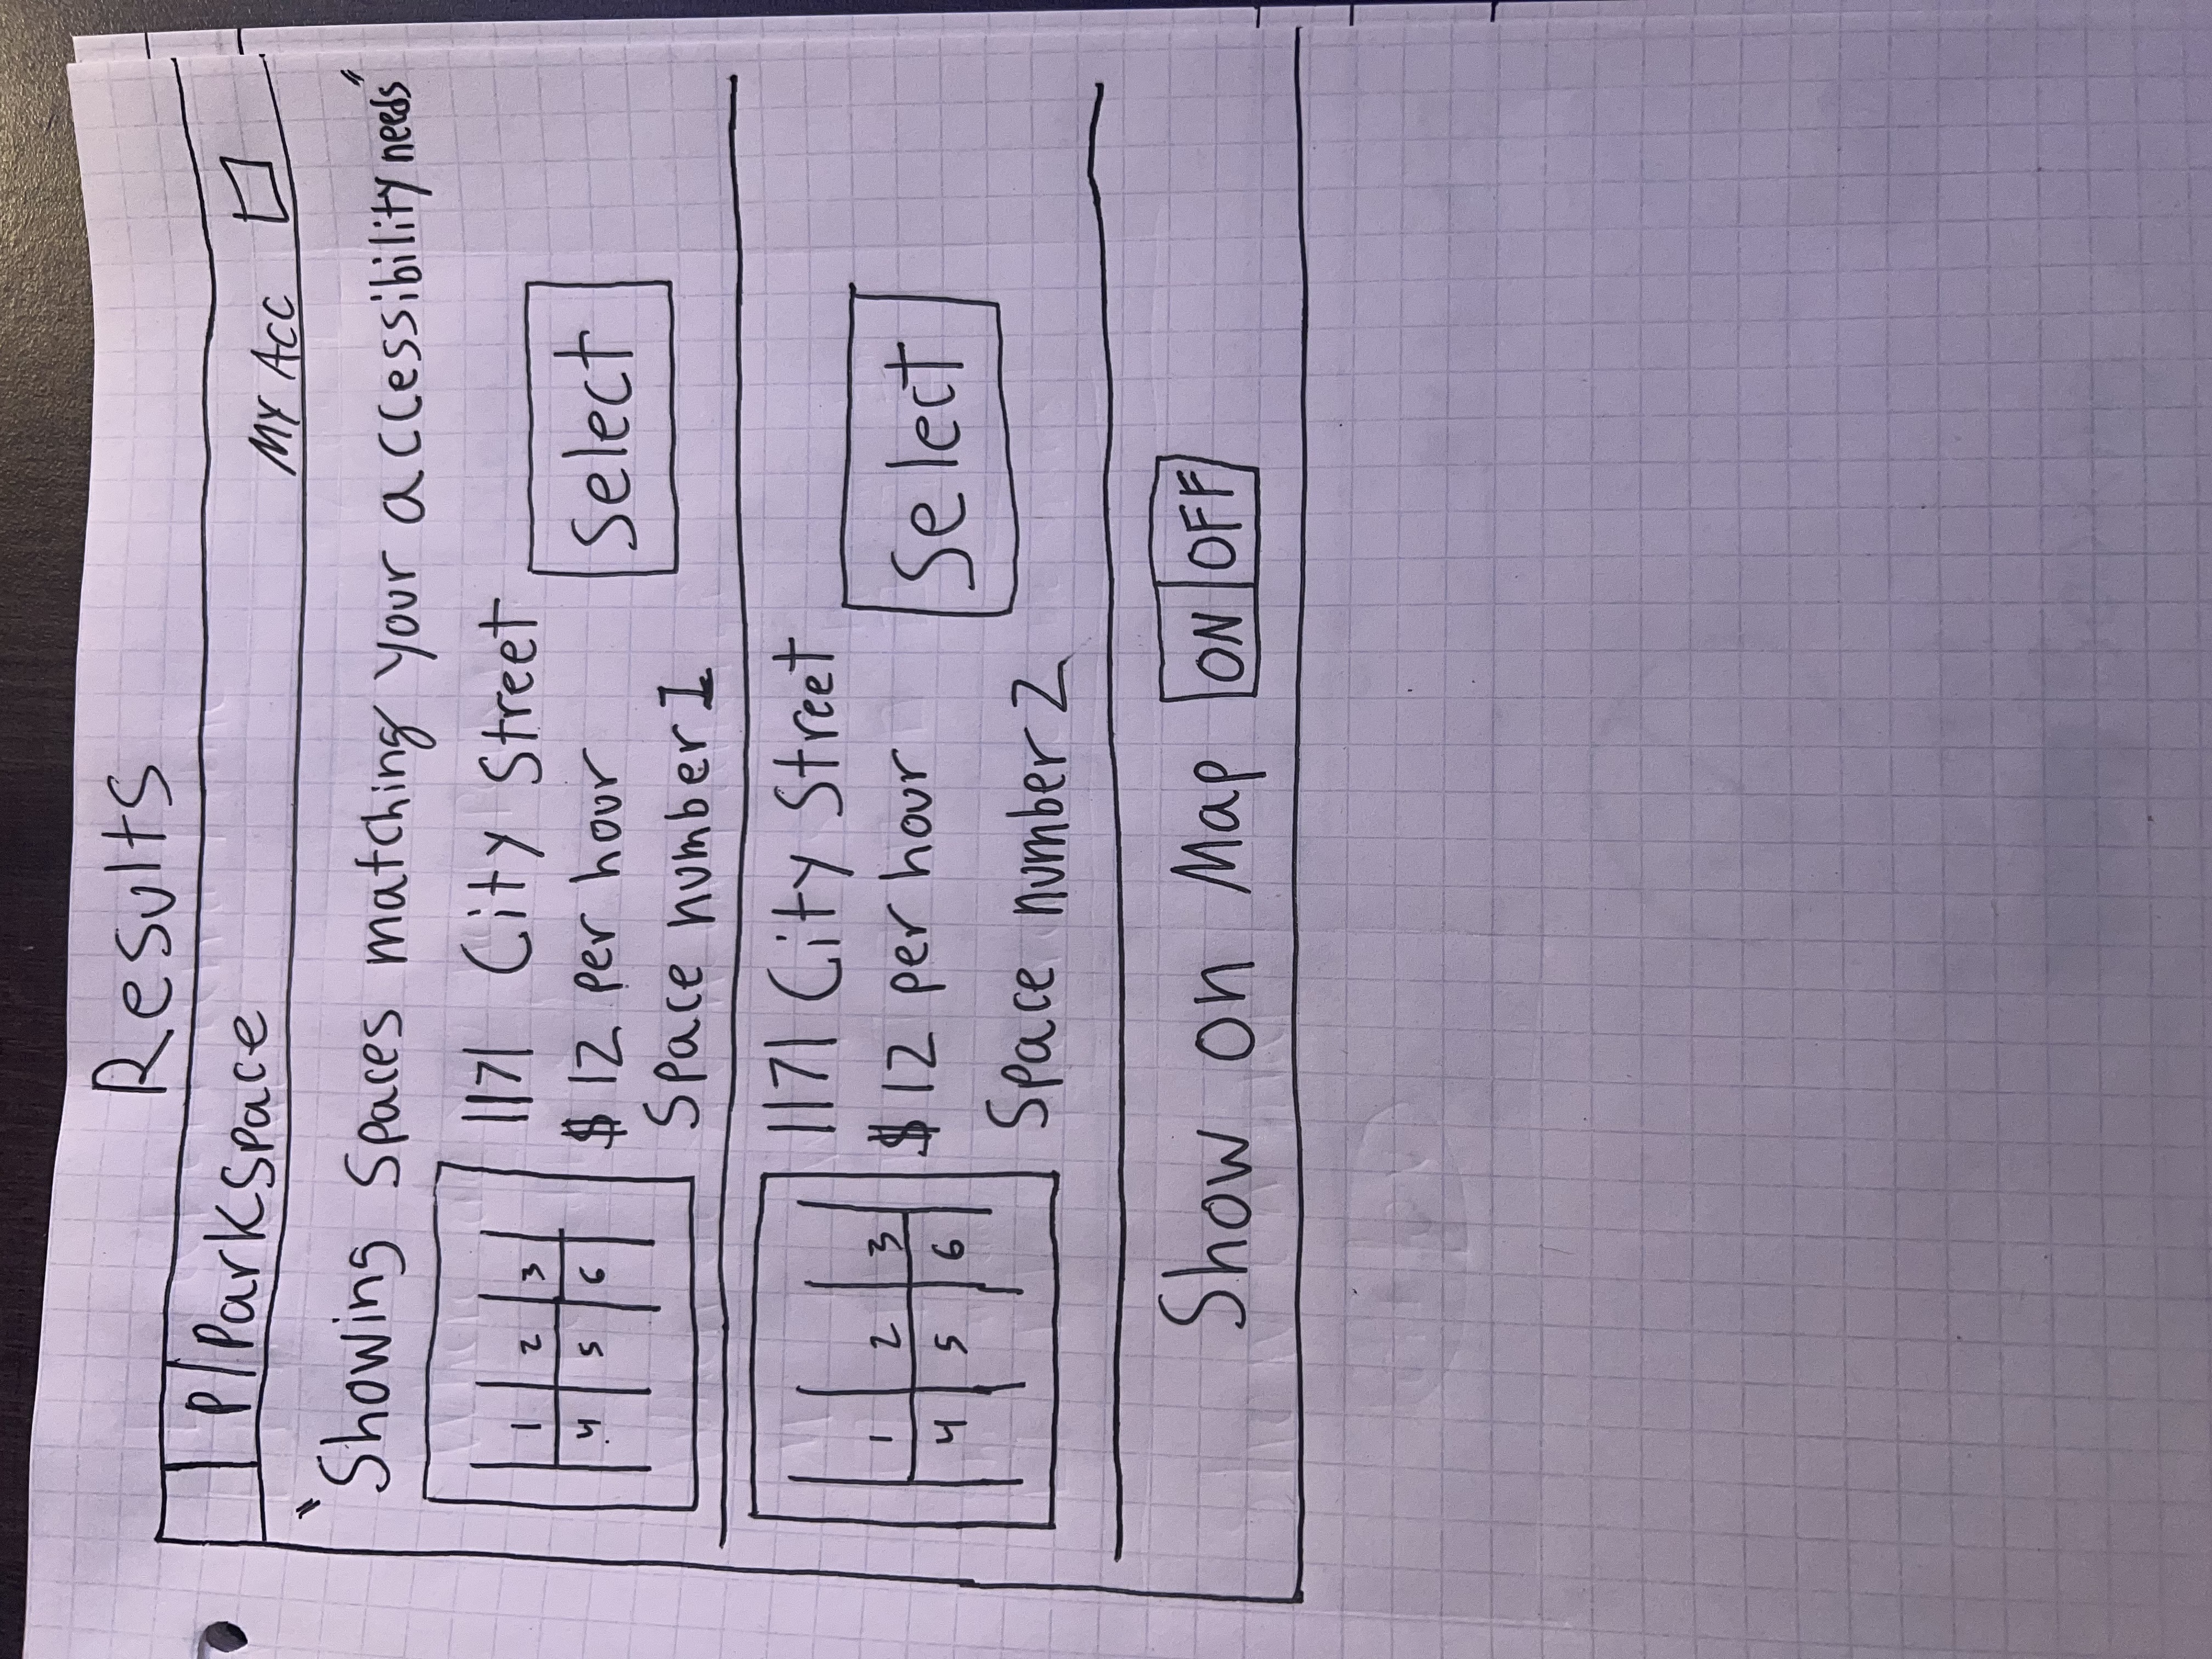 Results
P/ParkSpace
MY ACC
"Showing Spaces matching your accessibility needs"
1 2 3
4 5 6
1171 City Street
$12 per hour
Space number 1
Select
1 2 3
4 5 6
1171 City Street
$12 per hour
Space number 2
Select
Show on Map ON OFF